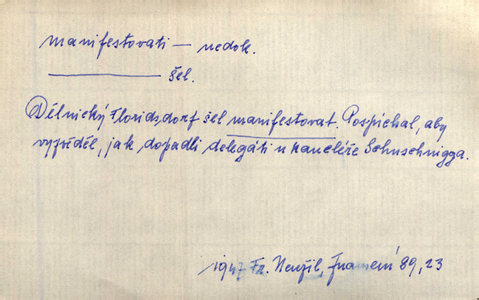 manifestovati — nedok.
——— šel.
Dělnický Floridsdorf šel manifestovat. Pospíchal, aby
vyzvěděl, jak dopadli delegáti u kancléře Schuschnigga.
1947 Fr. Neužil, Znamení 89, 23